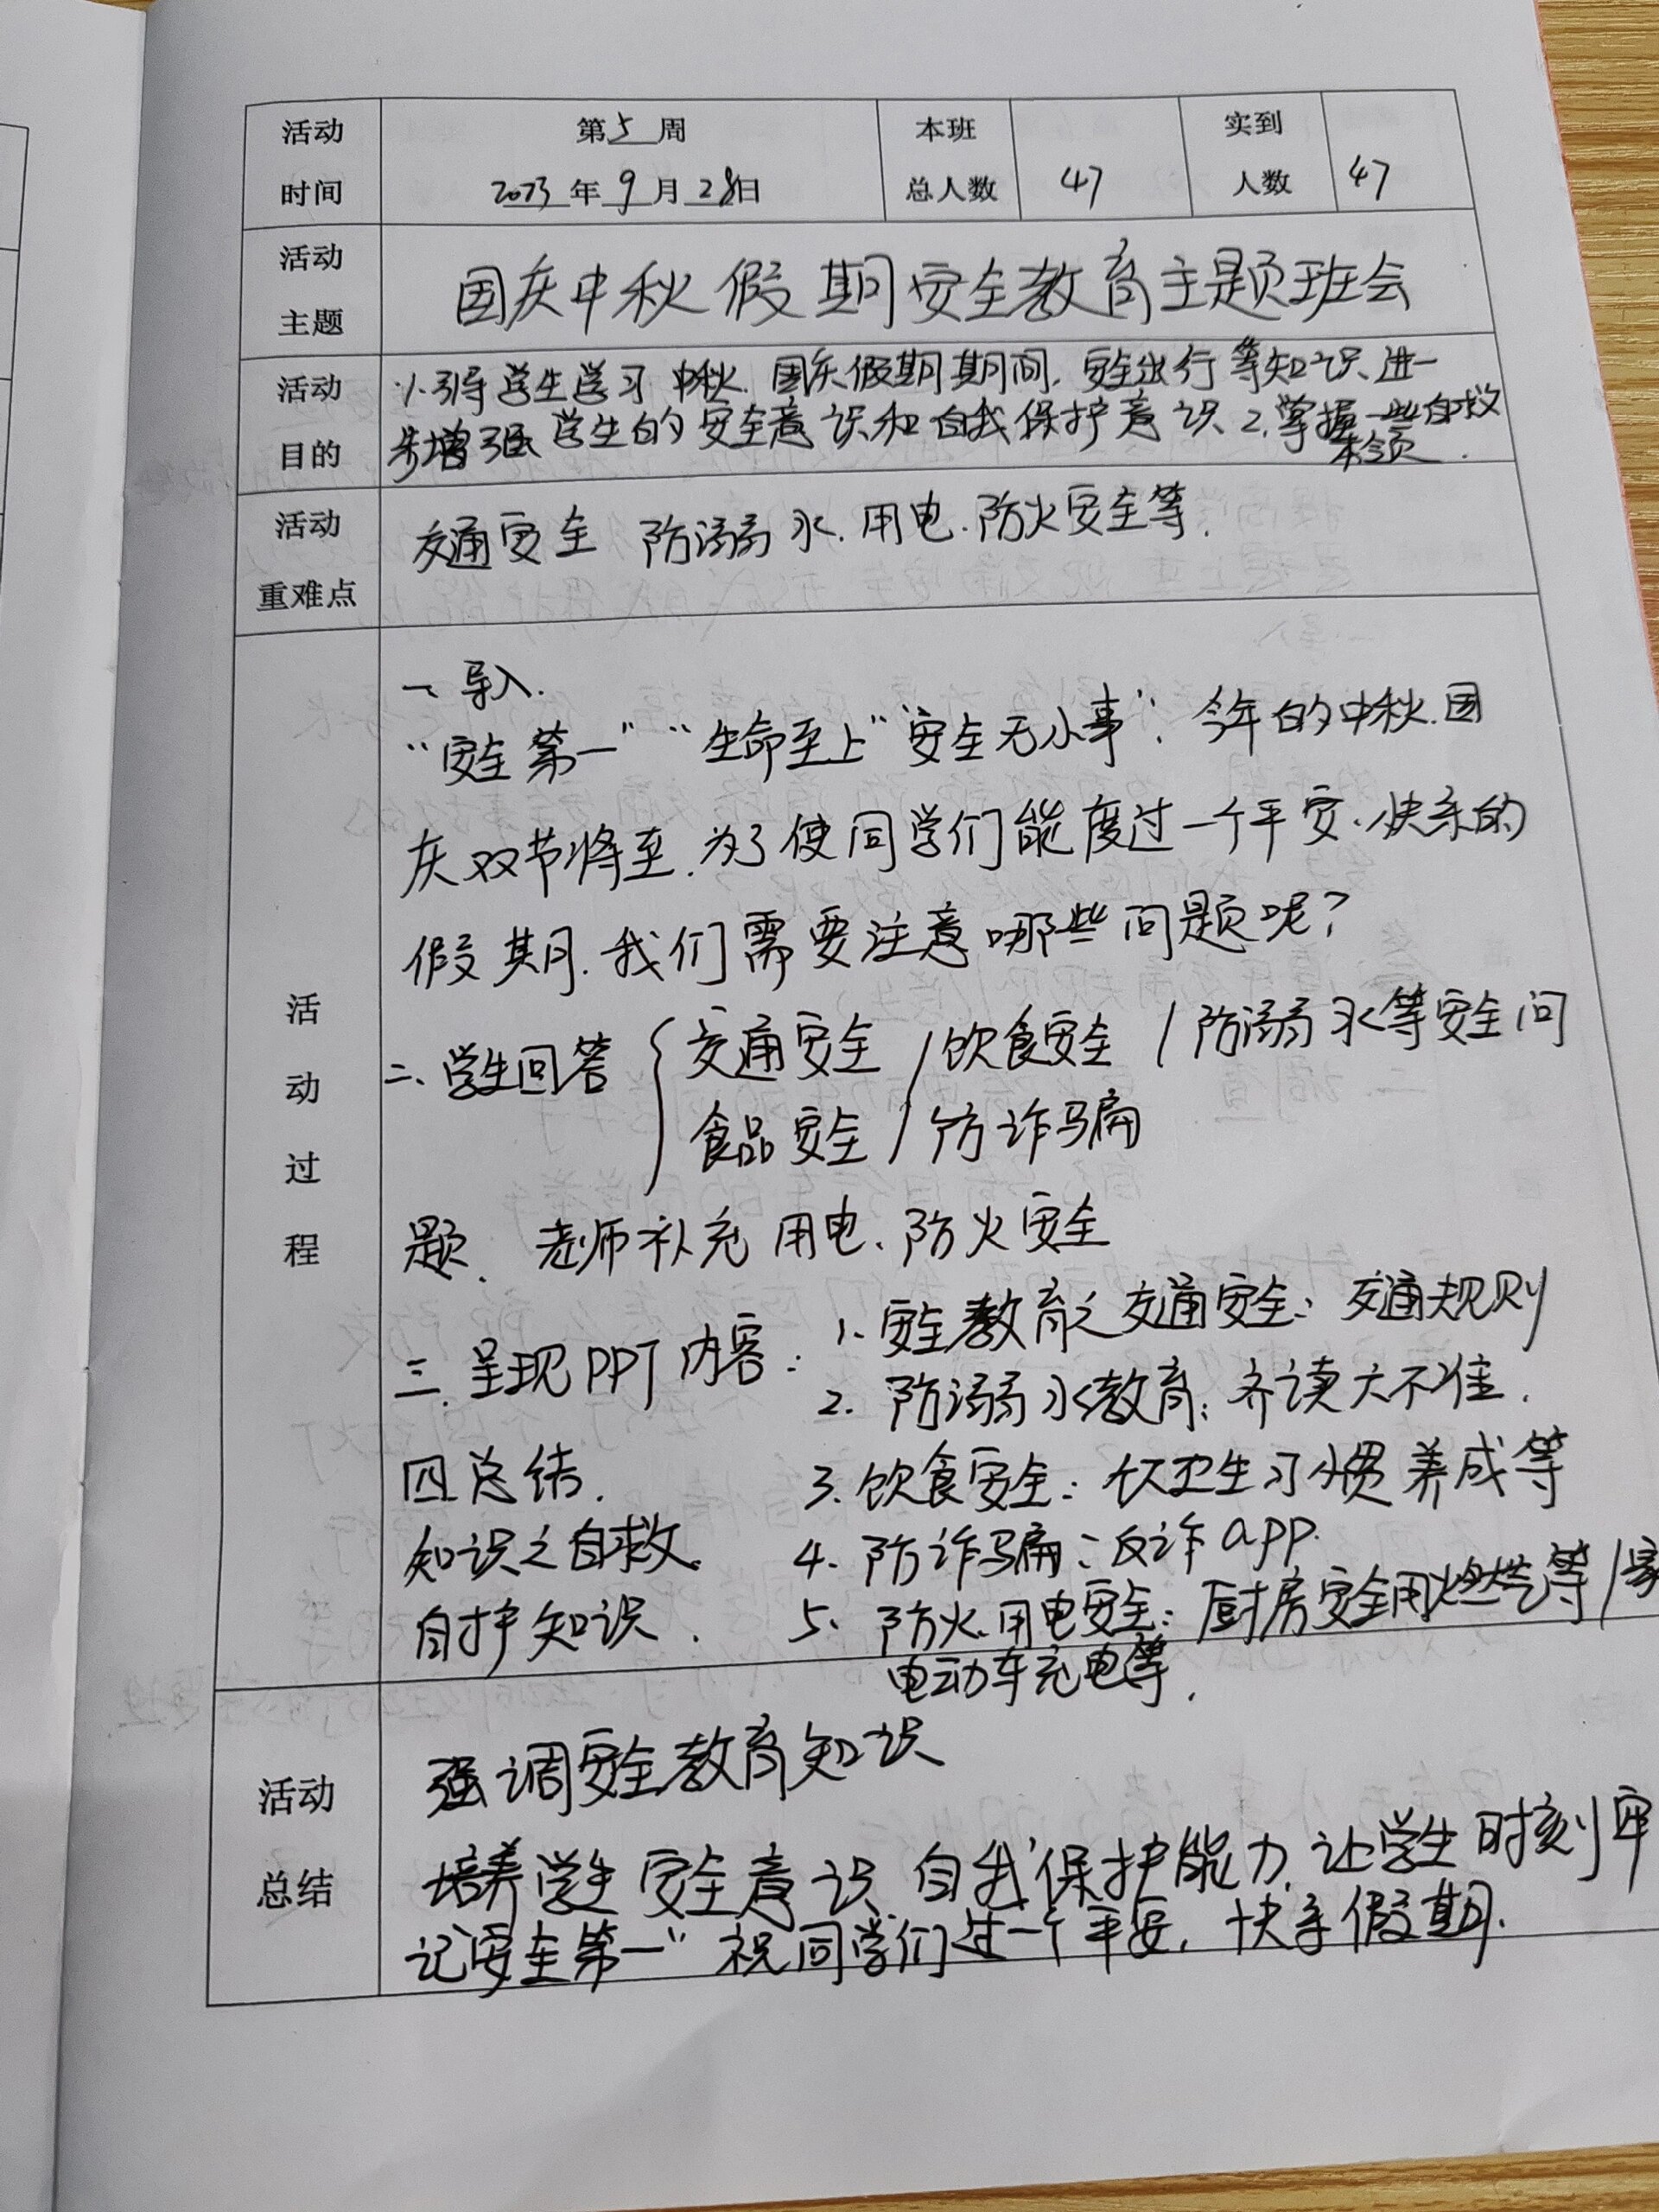 活动 第5周 本班 实到
时间 2023年9月28日 总人数 47 人数 47
活动
主题
国庆中秋假期安全教育主题班会
活动
目的
1、引导学生学习中秋、国庆假期期间,安全出行等知识、进一
步增强学生的安全意识和自我保护意识 2、掌握一些自救
本领.
活动
重难点
交通安全 防溺水.用电.防火安全等.
活动过程
一、导入.
“安全第一”“生命至上”“安全无小事”.今年的中秋.国
庆双节将至.为了使同学们能度过一个平安、快乐的
假期.我们需要注意哪些问题呢?
二、学生回答 交通安全/饮食安全/防溺水等安全问
食品安全/防诈骗
题、老师补充用电、防火安全
三.呈现PPT内容: 1、安全教育之交通安全:交通规则
2.防溺水教育:齐读六不准.
3.饮食安全:饮卫生习惯养成等
四总结.
知识之自救. 4.防诈骗:反诈app.
自护知识. 5、防火.用电安全:厨房安全用燃气等/家
电动车充电等.
活动
总结
强调安全教育知识
培养学生安全意识、自我保护能力.让学生时刻牢
记“安全第一”祝同学们过一个平安,快乐假期.